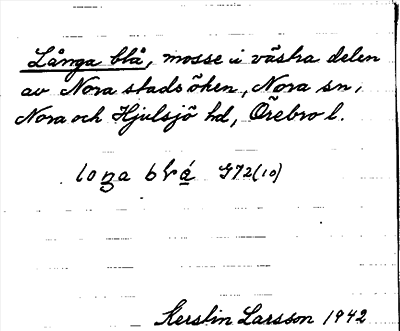 Långa blå, mosse i västra delen
av Nora stads öken, Nora sn,
Nora och Hjulsjö hd, Örebro l.
G72(10)
Kerstin Larsson 1942